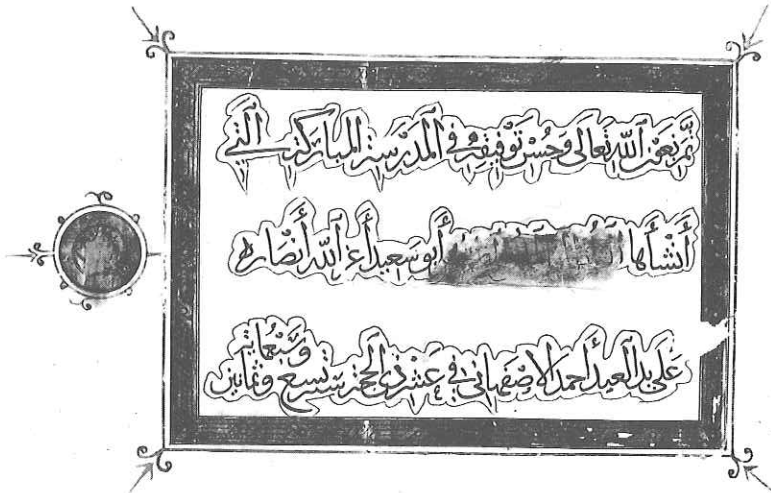 تم بعون الله تعالى وحسن توفيقه في المدرسة المباركة التي
أنشأها أبو سعيد أعز الله أنصاره
على يد العبد أحمد الاصفهاني في عشر ذي الحجة سنة تسع وثمانين
وسبعماية